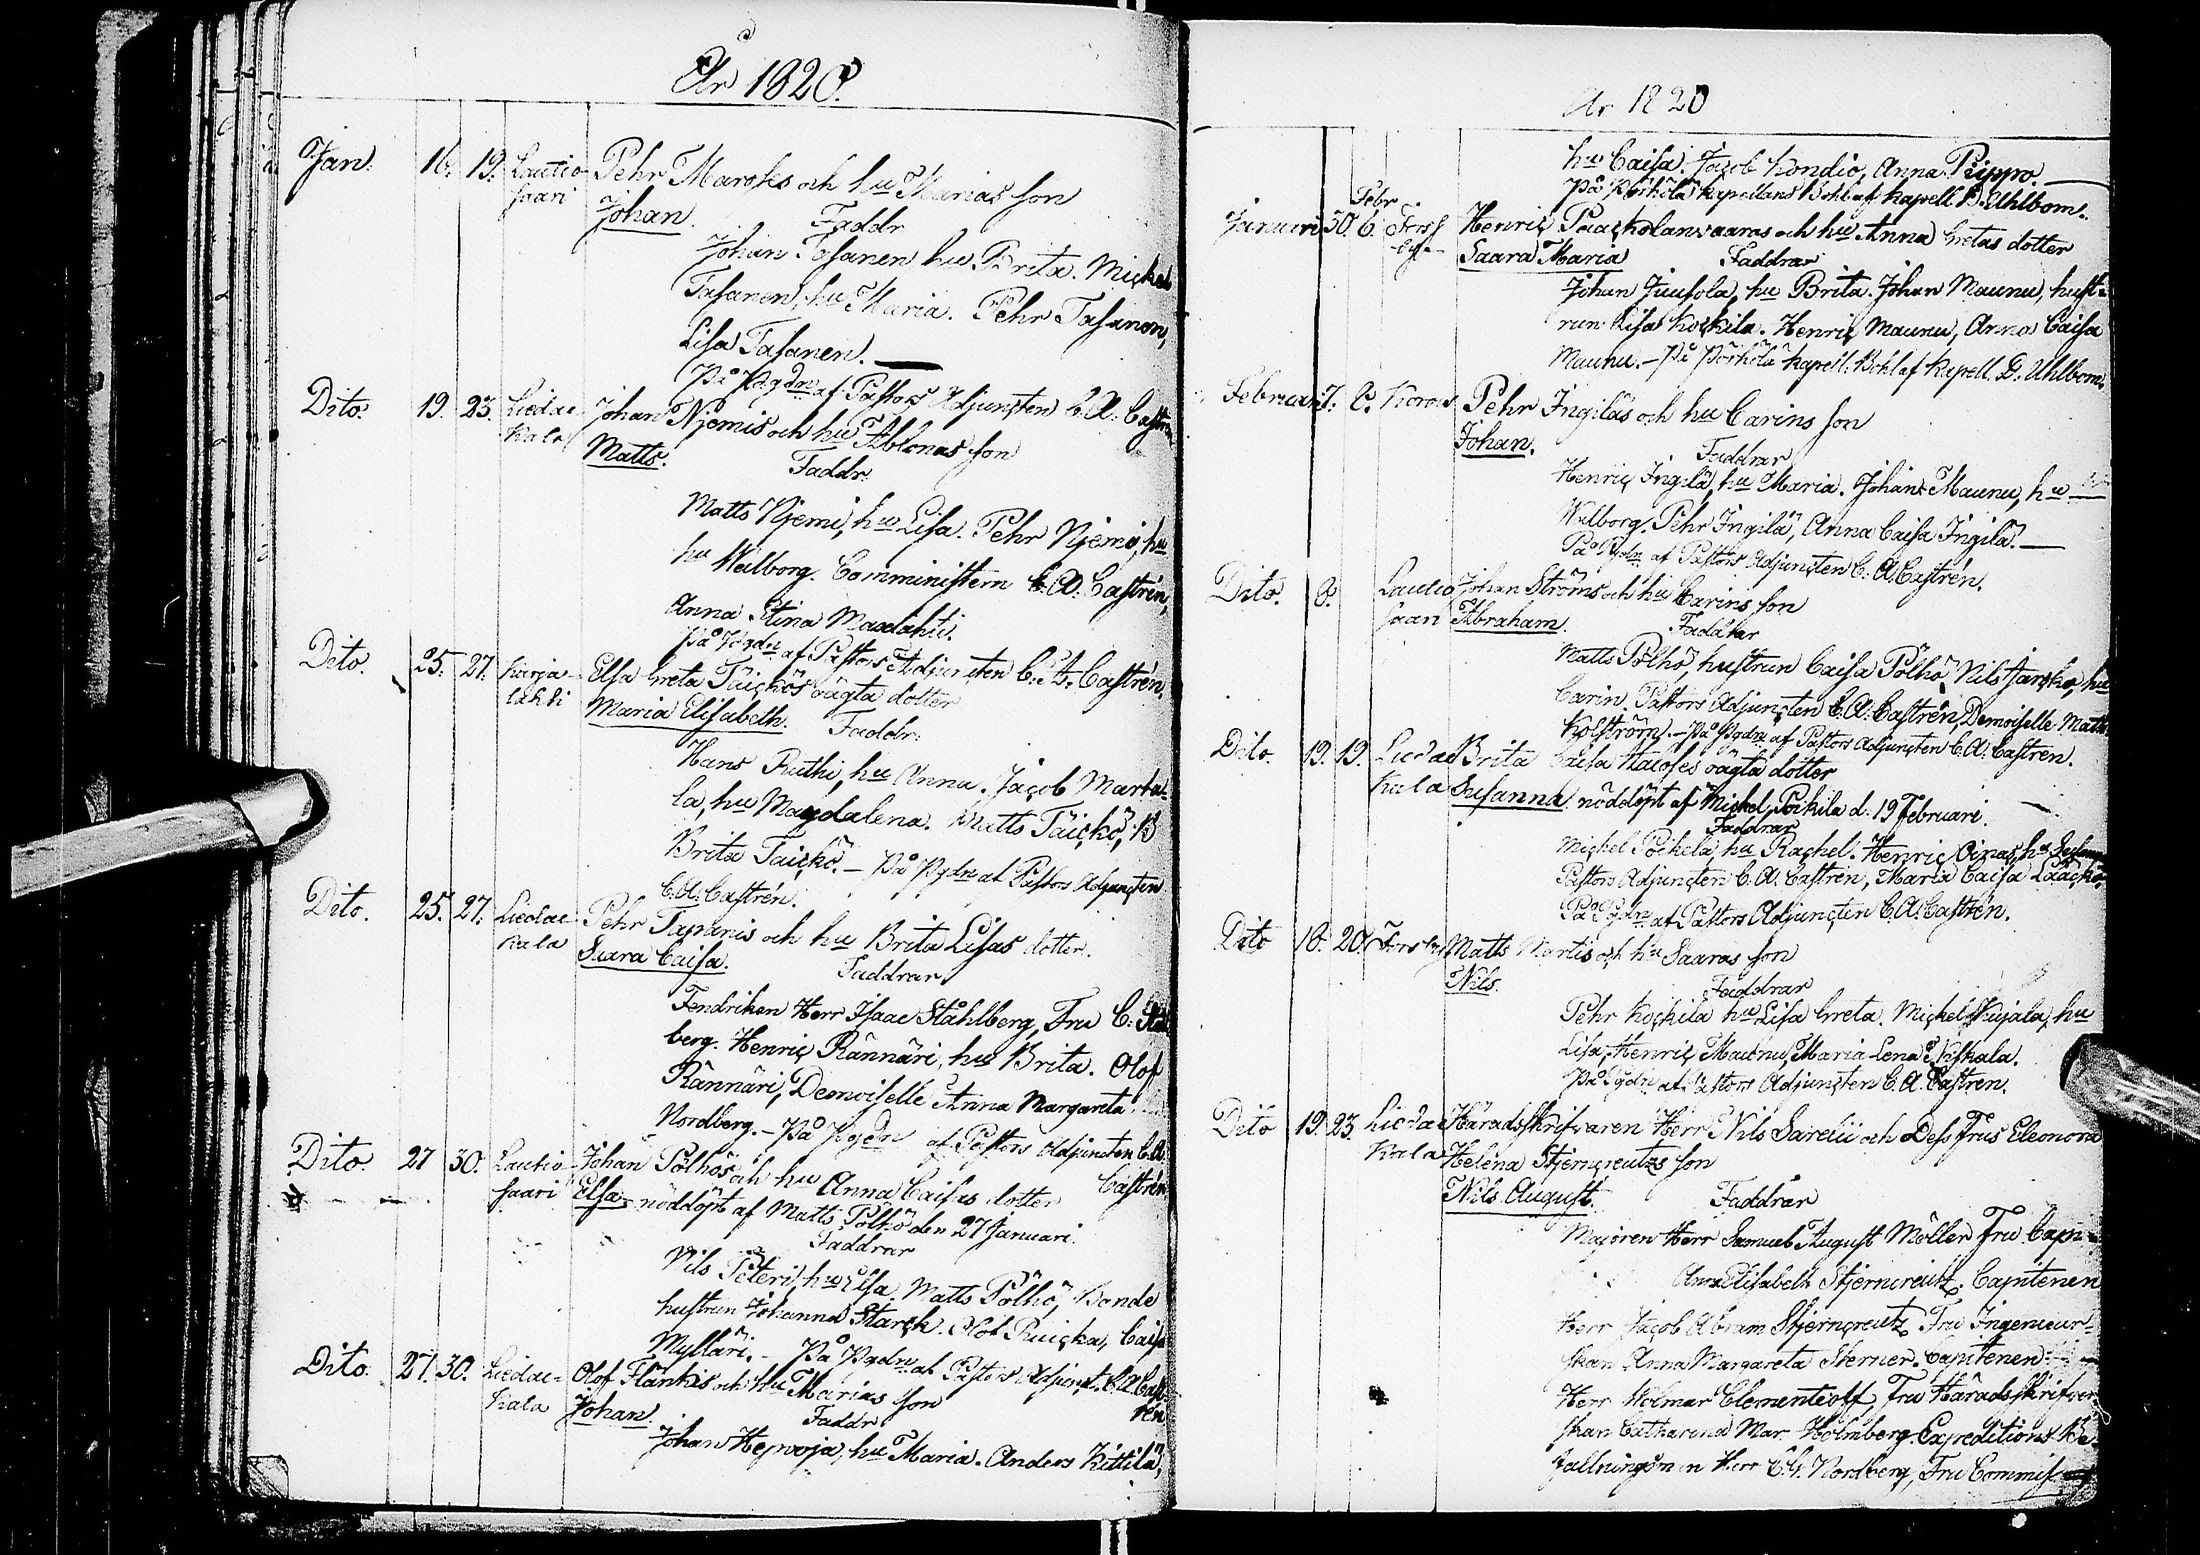 År 1820.
Jan. 16. 19. Lautio- Pehr Maroses och hu Marias son
saari Johan. Faddr
Johan Tasanen hu Brita. Michel
Tasanen, hu Maria. Pehr Tasanen,
Lisa Tasanen. —
På Pgdn af Pastors Adjuncten C. A. Castrén
Dito. 19. 23. Liedac- Johan Njemis och hu Ablonas son
kala Matts. Faddr.
Matts Njemi, hu Lisa. Pehr Njemi, hu
hu Walborg. Comministern C. A. Castrén,
Anna Stina
På Pgdn af Pastors Adjuncten C. A. Castrén.
Dito. 25. 27. Karja- Elsa Greta Täickös oägta dotter
lahti Maria Elisabeth. Faddr.
Hans Ruthi, hu Anna. Jacob Marta-
la, hu Magdalena. Matts Täickö, B
Brita Taickö. — På Pgdn af Pastors Adjuncten
C. A. Castrén.
Dito. 25. 27. Liedac- Pehr Tapanis och hu Brita Lisas dotter.
kala Saara Caisa. Faddrar
Fendriken Herr Isaac Ståhlberg, Fru C. Stål
berg. Henric Rännäri, hu Brita. Olof
Rännäri, Demoiselle Anna Margareta
Nordberg. — På Pgdn af Pastors Adjuncten C. A.
Castrén
Dito. 27 30. Lautio- Johan Pölhös och hu Anna Caisas dotter
saari Elsa nöddöpt af Matts Pölhö den 27 Januari.
Faddrar
Nils Peteri, hu Elsa. Matts Pölhö, Bonde
hustrun Johanna Starck. Olof Ruicka, Caisa
Mylläri. — På Pgdn af Pastors Adjunct. C. A. Cast-
rén
Dito. 27. 30. Liedac- Olof Flänkis och hu Marias son
kala Johan. Faddr
Johan Hepvoja, hu Maria. Anders Kittilä,
År 1820
hu Caisa. Jacob Kondio, Anna Pippo. —
På Pörhölä Kapellans Bohl af Kapell. D. Uhlbom.
Febr
Januari 30. 6. Fors Henric Paackolanvaaras och hu Anna Gretas dotter
by Saara Maria Faddrar
Johan Juusola, hu Brita. Johan Maunu, hust-
run Lisa Kockila. Henric Maunu, Anna Caisa
Maunu. — På Pörhölä Kapell. Bohl af Kapell. D. Uhlbom.
Februari 7. 8. Korva Pehr Ingiläs och hu Carins son
Johan. Faddrar
Henric Ingilä, hu Maria. Johan Maunu, hu
Walborg. Pehr Ingilä, Anna Caisa Ingilä. —
På Pgdn af Pastors Adjuncten C. A. Castrén.
Dito. 8. Lautio Johan Ströms och hu Carins son
saari Abraham. Faddrar
Matts Pölhö, hustrun Caisa Pölhö. Nils Jarsko, hu
Carin. Pastors Adjuncten C. A. Castrén, Demoiselle Marth
Kolström. — På Pgdn af Pastors Adjuncten C. A. Castrén.
Dito. 19. 19. Liedac Brita Caisa oägta dotter
kala Susanna nöddöpt af Michel Pockila d. 19 Februari.
Faddrar
Michel Pockela, hu Rachel. Henric Oinas, hu Susanna
Pastors Adjuncten C. A. Castrén, Maria Caisa Laacko
På Pgdn af Pastors Adjuncten C. A. Castrén.
Dito 18. 20. Forsby Matts Martis och hu Saaras son
Nils. Faddrar
Pehr Kockila hu Lisa Greta. Michel Kujala, hu
Lisa, Henric Maunu, Maria Lena Niskala.
På Pgdn af Pastors Adjuncten C. A. Castren.
Dito 19. 23. Liedac Häradsskrifvaren Herr Nils Sarelii och Dess Frus Eleonora
kala Helena Stjerncreutzs son
Nils August. Faddrar
Majoren Herr Samuel August Möller Fru Capn-
Anna Elisabeth Stjerncreutz. Capitenen
Herr Jacob Abram Stjerncreutz, Fru Ingenieur-
skan Anna Margareta Sterner. Capitenen
Herr Wolmar Clementeoff, Fru Häradsskrifver-
skan Catharina Mar. Holmberg. Expeditions Be-
fallningsman Herr C. G. Nordberg, Fru Commiss